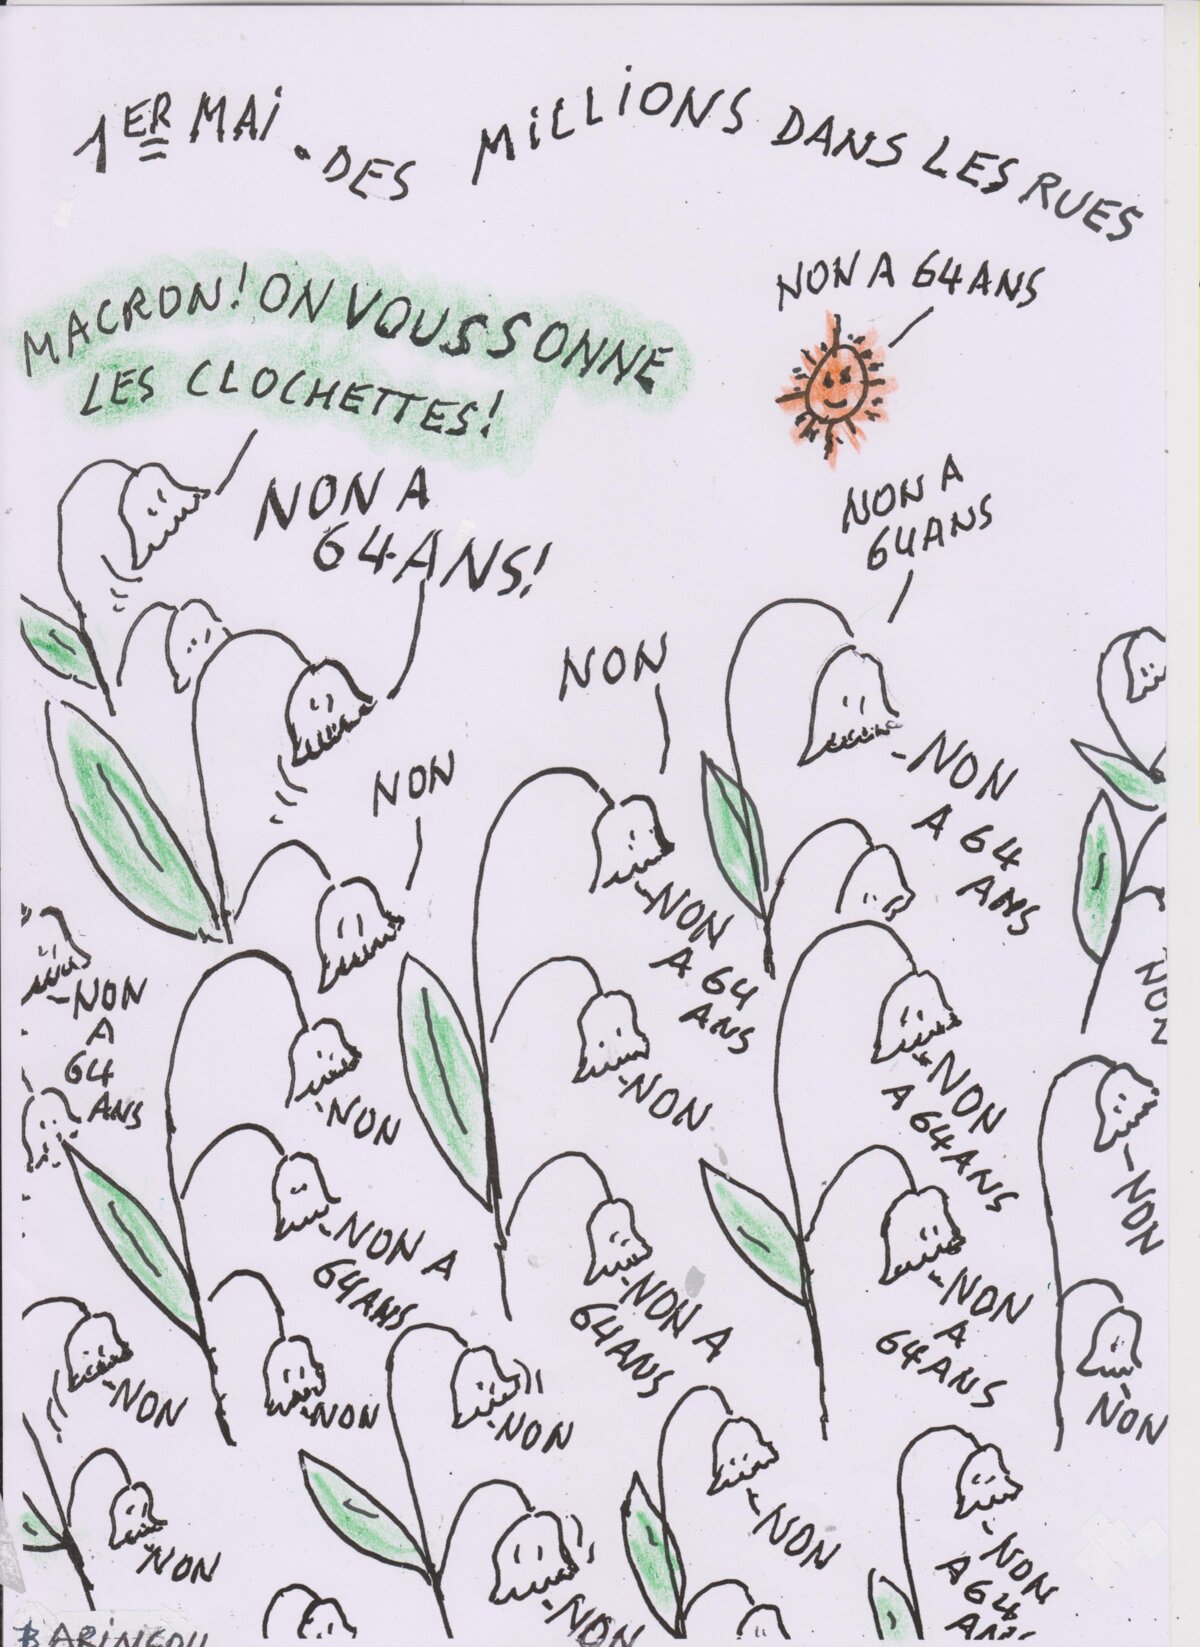 1ER MAI. DES MILLIONS DANS LES RUES
MACRON! ON VOUS SONNE
LES CLOCHETTES!
NON A 64 ANS
NON A
64 ANS!
NON A
64 ANS
NON
NON
-NON
A 64
ANS
-NON
A 64
ANS
-NON
A
64
ANS
NON
-NON
-NON
-NON
A 64 ANS
-NON
-NON A
64 ANS
-NON A
64 ANS
-NON
A
64 ANS
NON
-NON
-NON
-NON
-NON
-NON
-NON
-NON
A 64
ANS
BARINGOU